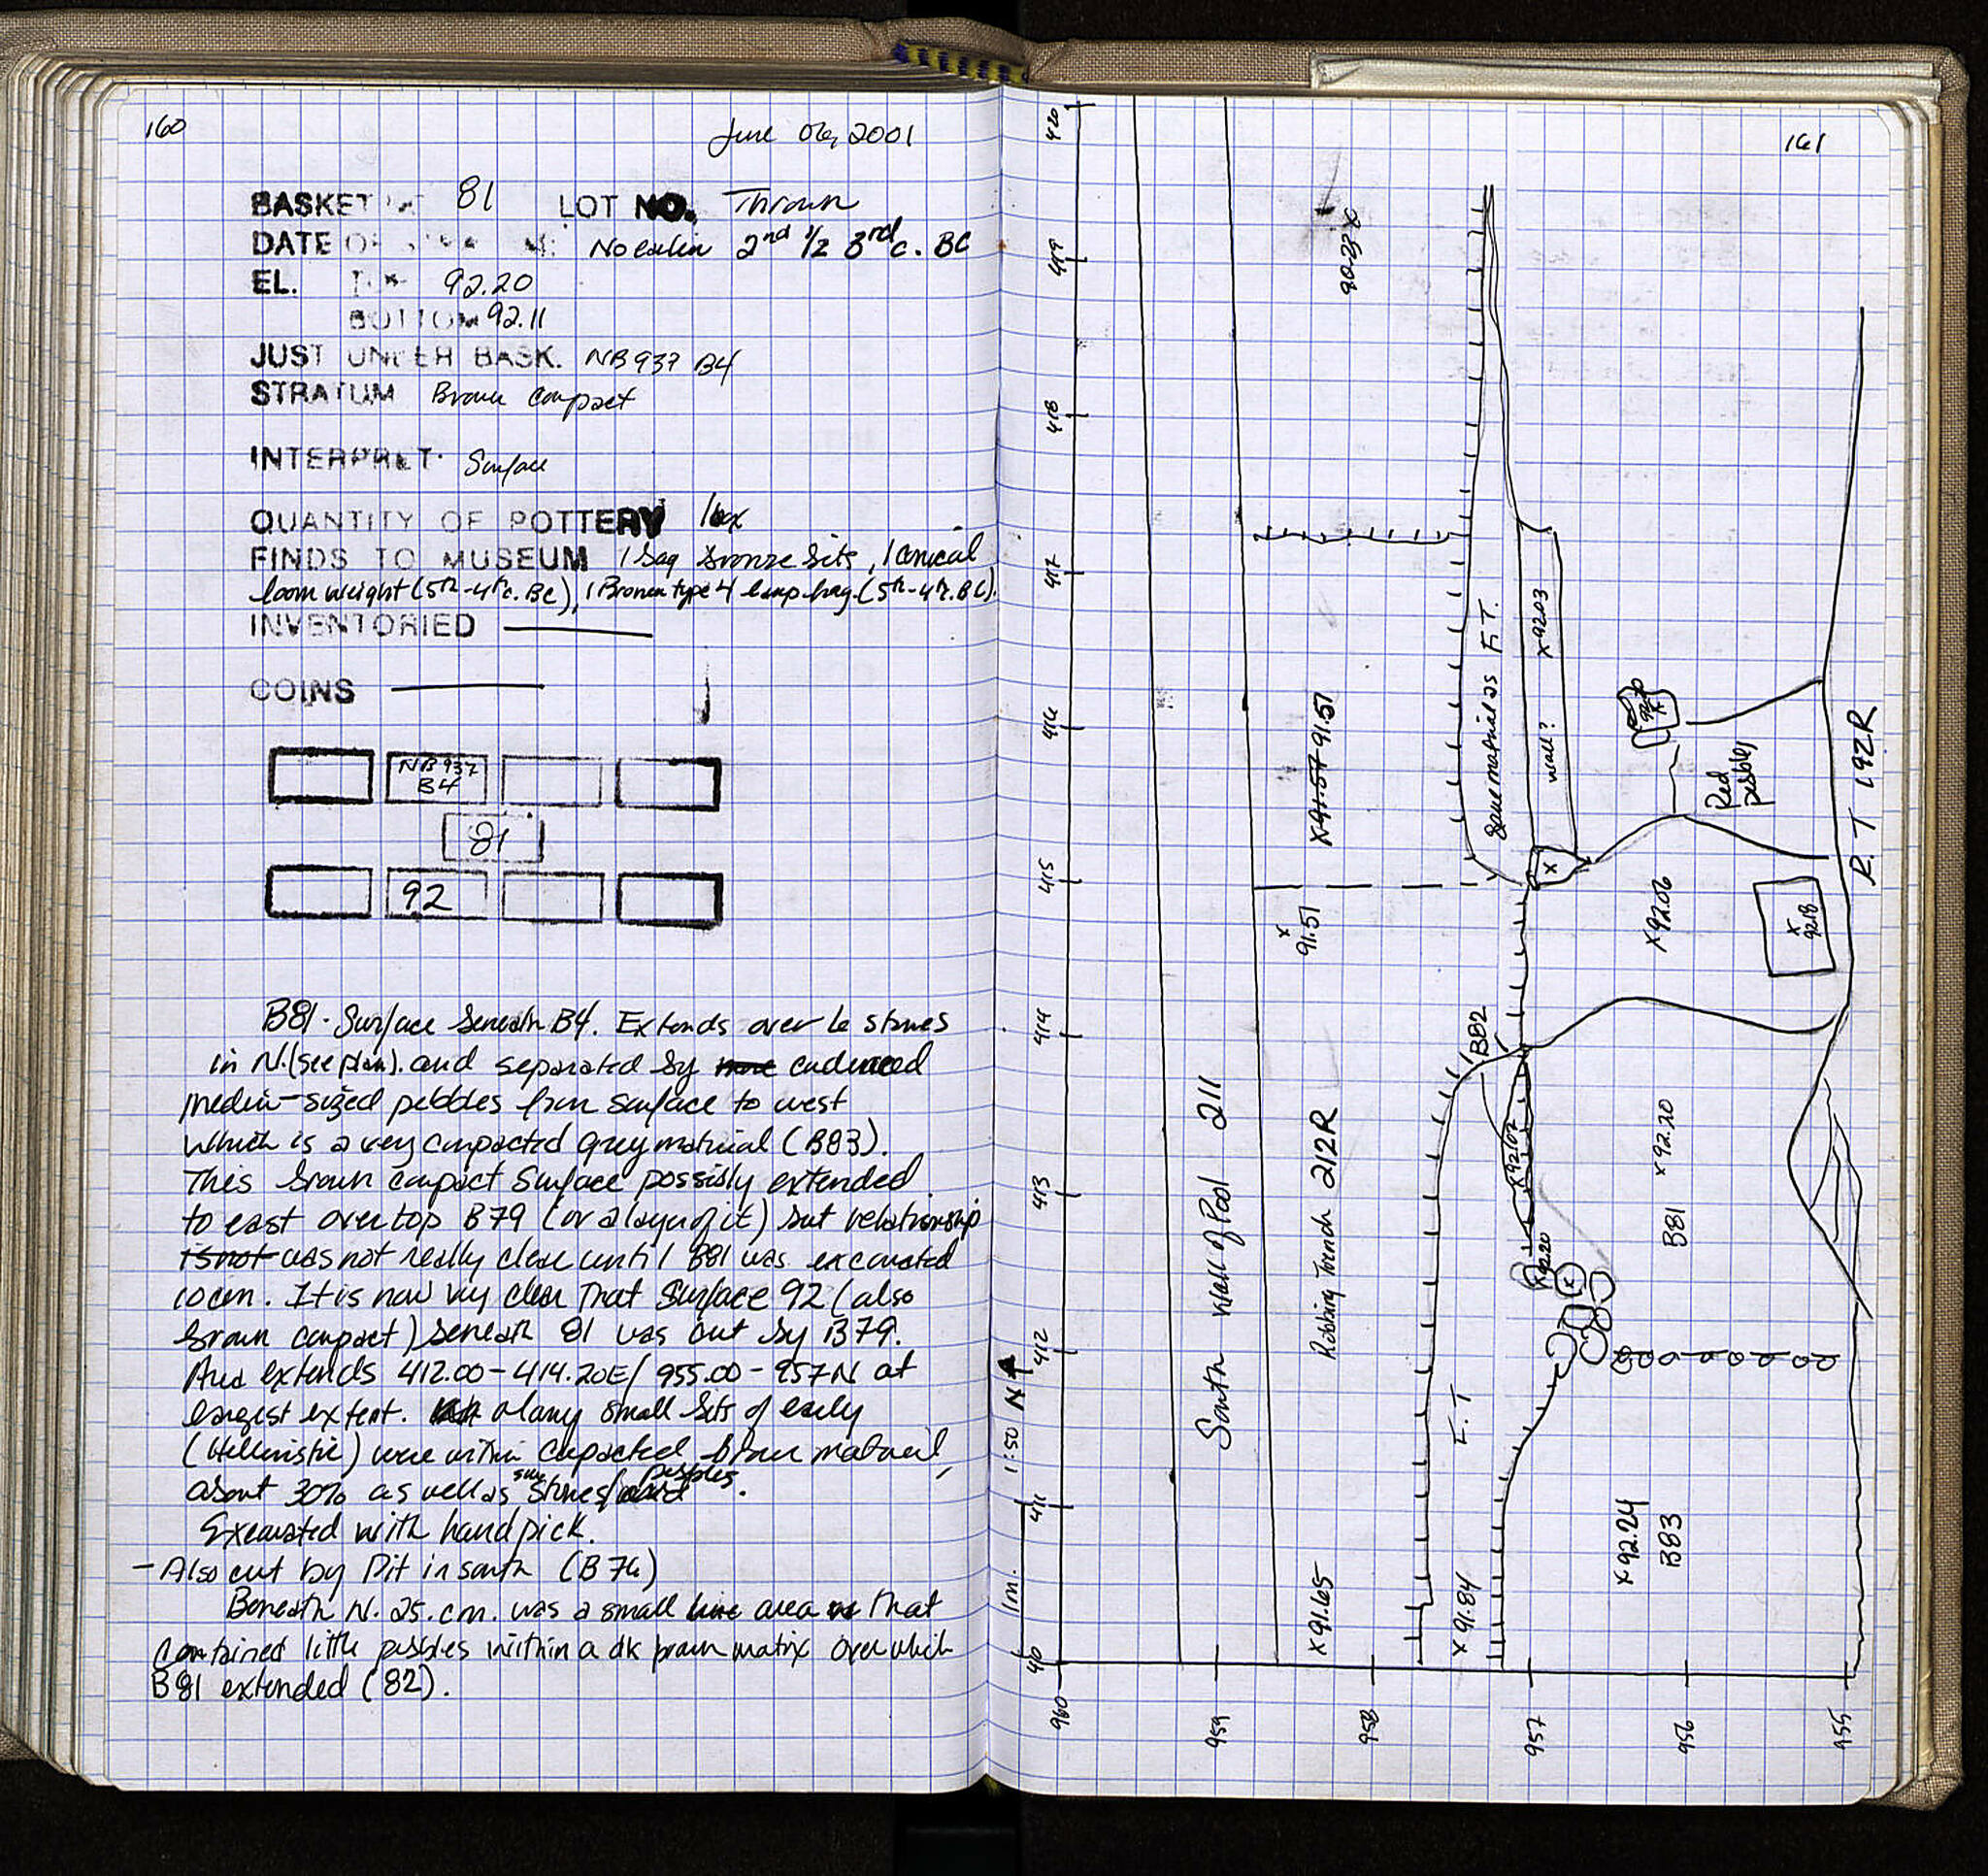 160
June 06, 2001
BASKET 81 LOT NO. Thrown
DATE No earlier 2nd 1/2 3rd c. BC
EL. 92.20
BOTTOM 92.11
JUST UNDER BASK. NB 937 B4
STRATUM Brown compact
INTERPRET. Surface
QUANTITY OF POTTERY 1 box
FINDS TO MUSEUM 1 bag bronze bits, 1 conical
loom weight (5th-4th c. BC), 1 Broneer type 4 lamp frag. (5th-4th. BC).
INVENTORIED
COINS
NB 937
B4
81
92
B81. Surface beneath B4. Extends over 6 stones
in N. (see plan). and separated by
medium-sized pebbles from surface to west
which is a very compacted grey material (B83).
This brown compact surface possibly extended
to east over top B79 (or a layer of it) but relationship
is not was not really clear until B81 was excavated
10 cm. It is now very clear that surface 92 (also
brown compact) beneath 81 was cut by B79.
Area extends 412.00-414.20E/ 955.00-957N at
largest extent. Many small bits of early
(Hellenistic) were within compacted brown material,
about 30% as well as stones/ pebbles.
Excavated with handpick.
- Also cut by Pit in south (B76)
Beneath N. 25. cm. was a small line area that
contained little pebbles within a dk brown matrix over which
B81 extended (82).
161
420
419
418
417
416
415
414
413
412
411
410
960
959
958
957
956
955
1m. 1:50 N
South Wall of Pool 211
Robbing Trench 212R
x 91.65
91.51
x 91.57 91.51
90.88 x
F.T
x 91.84
BB2
x 92.20
Same material as F.T.
wall? x 92.03
x
Red pebbles
R. T 192R
x 92.06
x 92.18
B81 x 92.20
x 92.24
B83